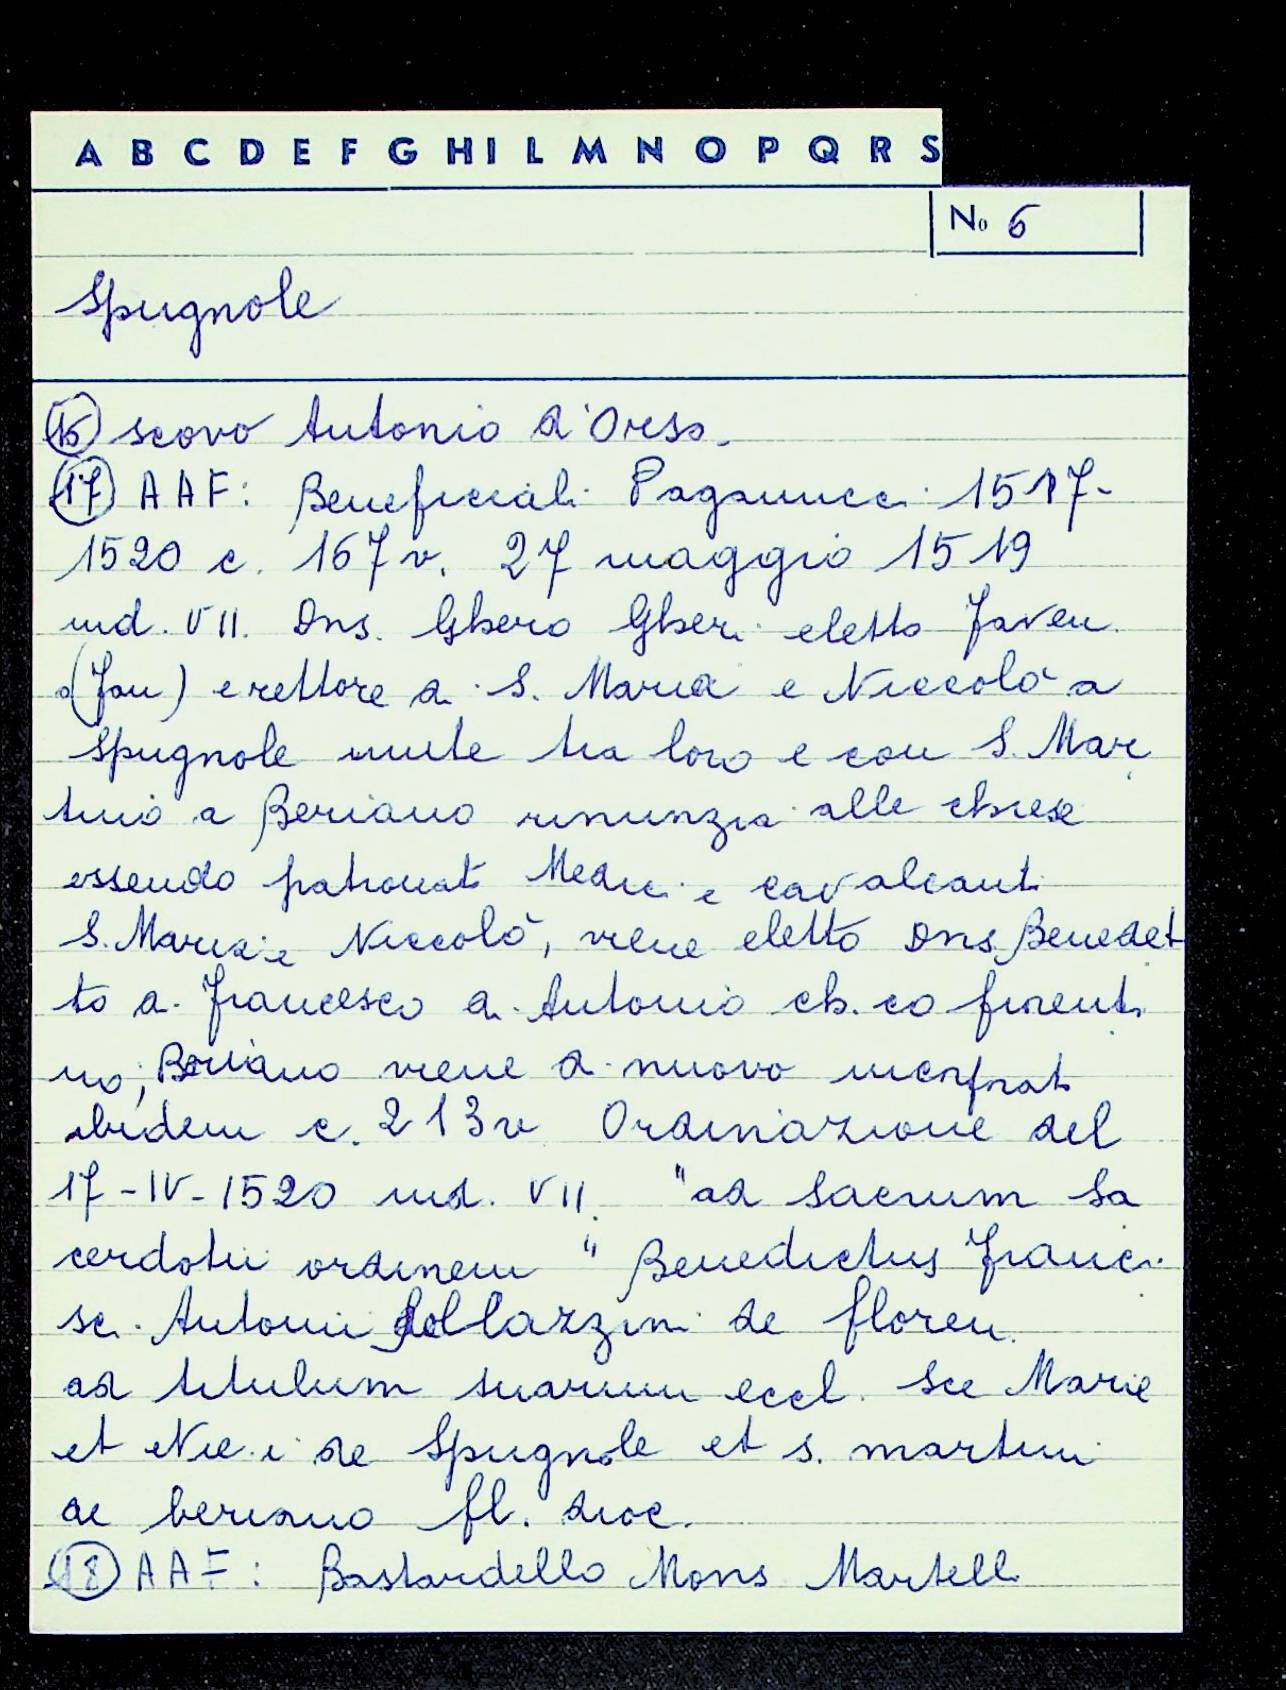 A B C D E F G H I L M N O P Q R S
No 6
Spugnole
16 scovo Antonio d'Orso.
17 AAF: Beneficiali Paganucci 1517-
1520 c. 167v. 27 maggio 1519
ind. VII. Dns. Ghero Gheri eletto
(Jan) e rettore di S. Maria e Niccolò a
Spugnole unite tra loro e con S. Mar
tino a Beriano rinunzia alle chiese
essendo patronati Medici e Cavalcanti
S. Maria e Niccolò, viene eletto Dns Benedet
to di Francesco di Antonio ch.co fiorenti
no; Beriano viene di nuovo
ibidem c. 213v Ordinazione del
17-IV-1520 ind. VII. "ad sacrum sa
cerdotii ordinem" Benedictus Franci
sci Antonii de floren.
ad titulum suarum eccl. Sce Marie
et Nic.i de Spugnole et s. martini
de beriano fl. dioc.
18 AAF: Bastardello Mons Martelli